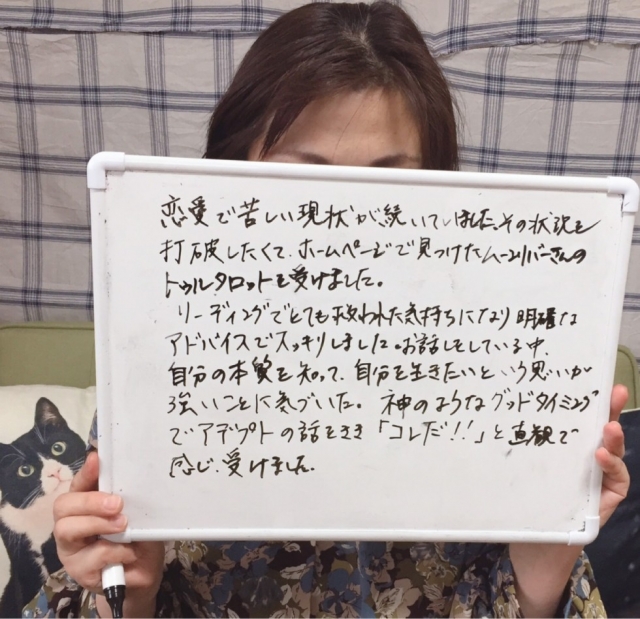 恋愛で苦しい現状が続いていました。その状況を
打破したくて、ホームページで見つけたムーンリバーさんの
トゥルタロットを受けました。
リーディングでとても救われた気持ちになり明確な
アドバイスでスッキリしました。お話しをしている中、
自分の本質を知って、自分を生きたいという思いが
強いことに気づいた。神のようなグッドタイミング
でアデプトの話をきき「コレだ!!」と直観で
感じ、受けました。